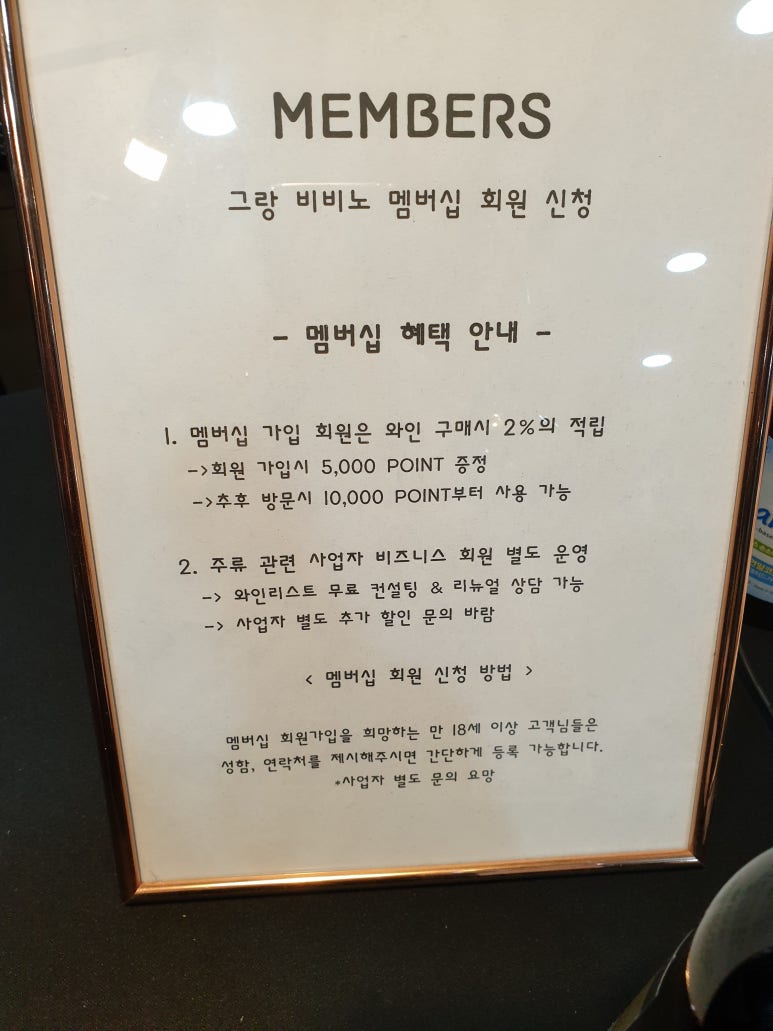 MEMBERS
그랑 비비노 멤버십 회원 신청
- 멤버십 혜택 안내 -
1. 멤버십 가입 회원은 와인 구매시 2%의 적립
->회원 가입시 5,000 POINT 증정
->추후 방문시 10,000 POINT부터 사용 가능
2. 주류 관련 사업자 비즈니스 회원 별도 운영
-> 와인리스트 무료 컨설팅 & 리뉴얼 상담 가능
-> 사업자 별도 추가 할인 문의 바람
< 멤버십 회원 신청 방법 >
멤버십 회원가입을 희망하는 만 18세 이상 고객님들은
성함, 연락처를 제시해주시면 간단하게 등록 가능합니다.
*사업자 별도 문의 요망